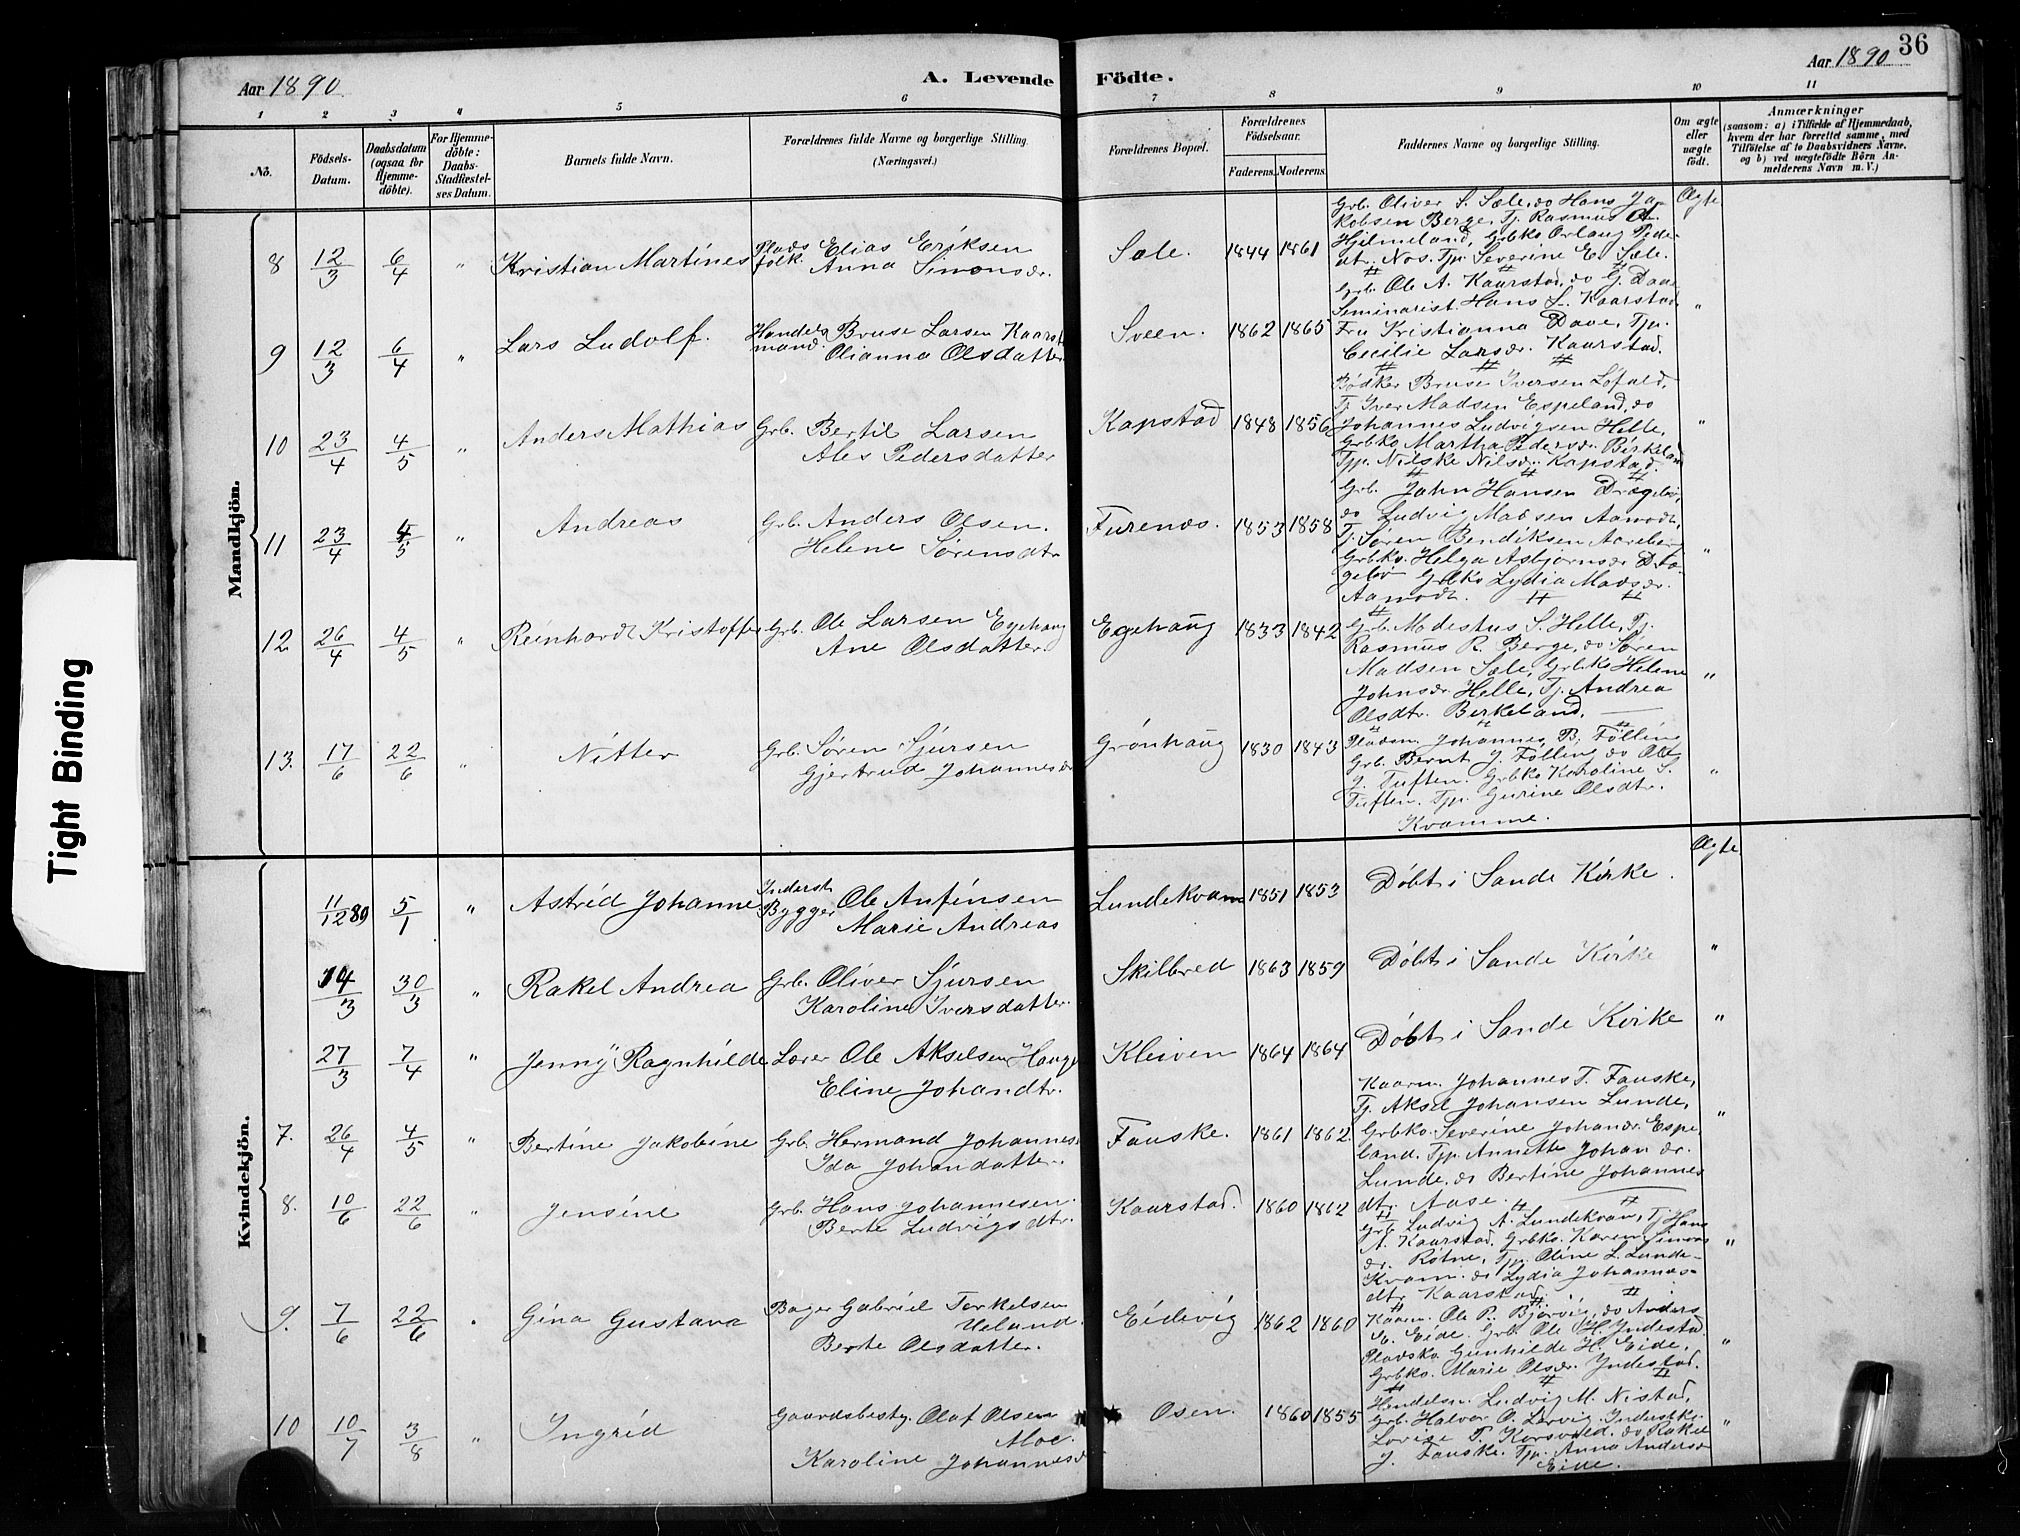 Aar 1890.
A. Levende
Födte.
Aar 1890
36
1 2 3 4 5 6 7 8 9 10 11
No.
Födsels-
Datum.
Daabsdatum
(ogsaa for
Hjemme-
döbte).
For Hjemme-
döbte:
Daabs-
Stadfæstel-
ses Datum.
Barnets fulde Navn.
Forældrenes fulde Navne og borgerlige Stilling
(Næringsvei.)
Forældrenes Bopæl.
Forældrenes
Födselsaar.
Faderens. Moderens.
Faddernes Navne og borgerlige Stilling.
Om ægte
eller
uægte
födt.
Anmærkninger
(saasom: a) i Tilfælde af Hjemmedaab,
hvem der har forrettet samme, med
Tilföielse af to Daabsvidners Navne,
og b) ved uægtefödte Börn An-
melderens Navn m. V.)
Mandkjön.
8 12/3 6/4 " Kristian Martines
Plads
folk.
Elias Eriksen
Anna Simonsdr.
Sæle. 1844 1861
Grb. Oliver S. Sæle, do Hans Ja-
kobsen Berge, Tj. Rasmus A.
Hjelmeland, Grbko Orlaug Peder
dtr. Nos. Tjp. Severine E. Sæle.
Ægte
9 12/3 6/4 " Lars Ludolf.
Handels
mand.
Bruse Larsen Kaarst
Olianna Olsdatter
Sveen. 1862 1865
Grb. Ole A. Kaarstad, do G. Daae
Seminarist Hans L. Kaarstad
Fru Kristianna Daae, Tjp.
Cecilie Larsdr. Kaarstad.
"
10 23/4 4/5 " Anders Mathias
Grb. Bertil Larsen
Ales Pedersdatter
Kapstad 1848 1856
Bødker Bruse Iversen Løfald,
Tj. Iver Madsen Espeland, do
Johannes Ludvigsen Helle,
Grbko Martha Pedersdr. Birkeland
Tjp. Nilske Nilsdr. Kapstad.
"
11 23/4 4/5 " Andreas
Grb. Anders Olsen.
Helene Sørensdtr
Furenæs. 1853 1858
Grb. John Hansen Dragebø,
do Ludvig Madsen Aamodt,
Tj. Søren Bendiksen Aareber
Grbko. Helga Asbjørnsdr Dra-
gebø Grbko Lydia Madsdr.
Aamodt.
"
12 26/4 4/5 " Reinhardt Kristoffer
Grb. Ole Larsen Egehaug
Ane Olsdatter
Egehaug 1833 1842
Grb. Modestus S. Helle, Tj.
Rasmus R. Berge, do Søren
Madsen Sæle, Grbko Helene
Johnsdr Helle, Tj. Andrea
Olsdtr. Berkeland.
"
13. 17/6 22/6 " Nitter
Grb. Søren Sjursen
Gjertrud Johannesdr
Grønhaug 1830 1843
Pladsm. Johannes B. Følling
Grb. Bernt J. Følling do Ole
J. Tuften. Grbko Karoline S.
Tuften. Tjp. Gurine Olsdtr.
Kvamme.
"
Kvindekjön.
11/12 89 5/1 " Astrid Johanne
Inderst
Bygger
Ole Anfinsen
Marie Andreas
Lundekvam 1851 1853
Døbt i Sande Kirke.
Ægte
14/3 30/3 " Rakel Andrea
Grb. Oliver Sjursen
Karoline Iversdatter.
Skilbred 1863 1859
Døbt i Sande Kirke
"
27/3 7/4 " Jenny Ragnhilde
Lærer Ole Akselsen Hauge
Eline Johandtr.
Kleiven 1864 1864
Døbt i Sande Kirke
"
7. 26/4 4/5 " Bertine Jakobine
Grb. Hermand Johannes
Ida Johandatter.
Fauske. 1861 1862
Kaarm. Johannes T. Fauske,
Tj. Aksel Johansen Lunde,
Grbko. Severine Johandr. Espe
land. Tjp. Annette Johan dr.
Lunde. do Bertine Johannes
dtr. Aase.
"
8. 10/6 22/6 " Jensine
Grb. Hans Johannesen.
Berte Ludvigsdtr.
Kaarstad. 1860 1862
Grb. Ludvig A. Lundekvam, Tj. Hans
A. Kaarstad. Grbko. Karen Simons
dr. Rotne, Tjp. Oline L. Lunde-
kvam. do Lydia Johannes-
dtr Kaarstad.
"
9. 7/6 22/6 " Gina Gustava
Bager Gabriel Torkelsen
Ueland.
Berte Olsdatter.
Eidevig 1862 1860
Kaarm. Ole P. Bjørvig, do Anders
M. Eide. Grb. Ole H. Yndestad
Pladsko Gunhilde H. Eide,
Grbko. Marie Olsdr. Yndestad.
"
10 10/7 3/8 " Ingrid
Gaardsbesty. Olaf Olsen
Moe.
Karoline Johannesd
Osen. 1860 1855
Hendelsm. Ludvig M. Nistad,
Grb. Halvor O. Lervig. Inderstko.
Lovise T. Korsvold. do Rakel
J. Fauske. Tjp. Anna Andersdr
Eide.
"
Tight Binding